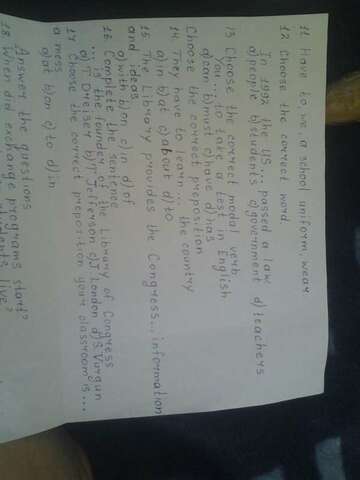 11 Have to, we, a school uniform, wear
12 Choose the correct word
In 1992 the US... passed a law
a) people b) students c) government d) teachers
13 Choose the correct modal verb
You... to take a test in English
a) can b) must c) have d) as
Choose the correct preposition
14. They have to learn... the country
a) in b) at c) about d) to
15 The Library provides the Congress... information
and ideas
a) with b) on c) in d) of
16 Complete the sentence
... is the founder of the Library of Congress
a) T Dreiser b) T Jefferson c) J London d) S Vargun
17 Choose the correct preposition your classroom is...
a mess
a) at b) on c) to d) in
Answer the questions
18. When did exchange programs start?
students live?